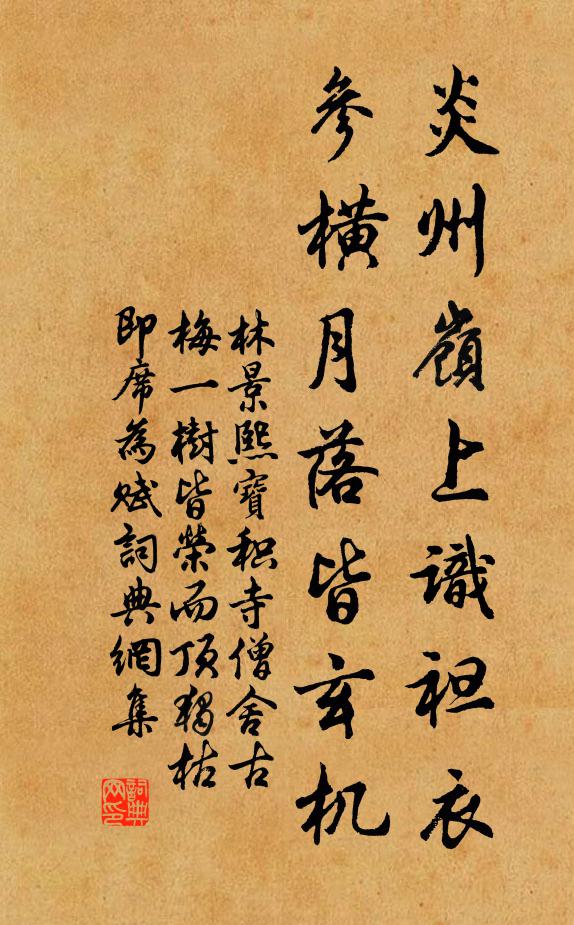 炎州嶺上識袒衣
參橫月落皆玄机
林景熙寶积寺僧舍古
梅一樹皆榮而頂獨枯
即席為賦詞典網集
詞典網印